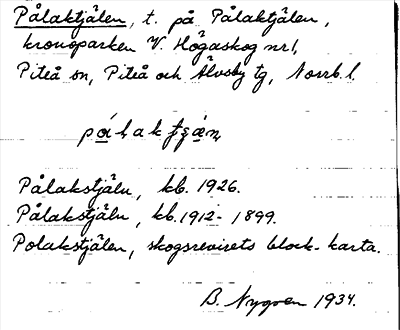 Pålaktjälen, t. på Pålaktjälen,
kronoparken V. Högaskog nr 1,
Piteå sn, Piteå och Älvsby tg, Norrb. l.
Pålakstjäln, kb. 1926.
Pålakstjäln, kb. 1912-1899.
Polakstjälen, skogsrevirets block-karta.
B. Nygren 1934.